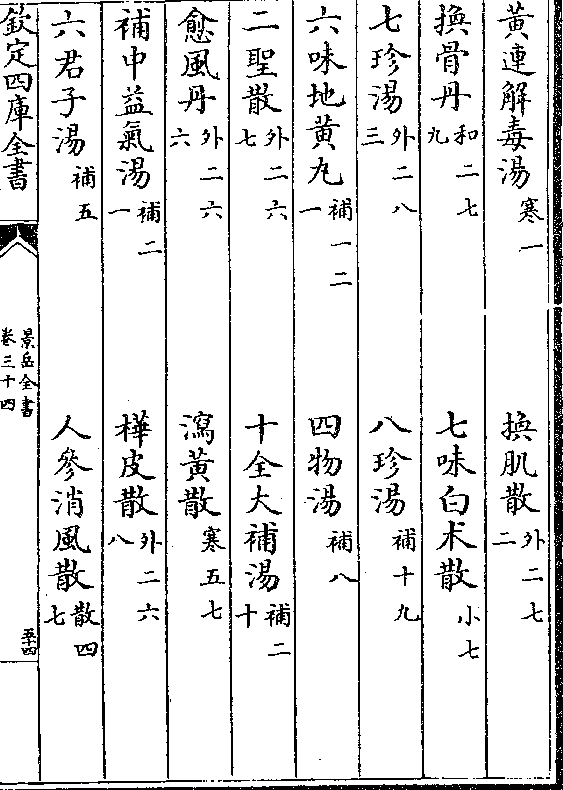 黄連解毒湯 寒一 換肌散 外二七二
換骨丹 和二七九 七味白术散 小七
七珍湯 外二八三 八珍湯 補十九
六味地黄丸 補一二一 四物湯 補八
二聖散 外二六七 十全大補湯 補二十
愈風丹 外二六六 瀉黄散 寒五七
補中益氣湯 補二一 樺皮散 外二六八
六君子湯 補五 人參消風散 散四七
欽定四庫全書 景岳全書 卷三十四 五十四